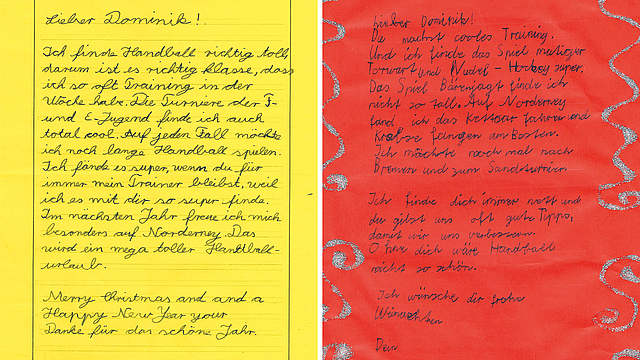 Lieber Dominik!
Ich finde Handball richtig toll,
darum ist es richtig klasse, dass
ich so oft Training in der
Woche habe. Die Turniere der F-
und E-Jugend finde ich auch
total cool. Auf jeden Fall möchte
ich noch lange Handball spielen.
Ich fände es super, wenn du für
immer mein Trainer bleibst, weil
ich es mit dir so super finde.
Im nächsten Jahr freue ich mich
besonders auf Norderney. Das
wird ein mega toller Handball-
urlaub.
Merry Christmas and and a
Happy New Year your
Danke für das schöne Jahr.
Lieber Dominik!
Du machst cooles Training.
Und ich finde das Spiel mutiger
Torwart und Nudel - super.
Das Spiel Bärenjagt finde ich
nicht so toll. Auf Norderney
fand ich das Kettcar fahren und
Krebse fangen am besten.
Ich möchte noch mal nach
Bremen und zum Sandturnier.
Ich finde dich immer nett und
du gibst uns oft gute Tipps,
damit wir uns verbessern.
Ohne dich wäre Handball
nicht so schön.
Ich wünsche dir frohe
Dein